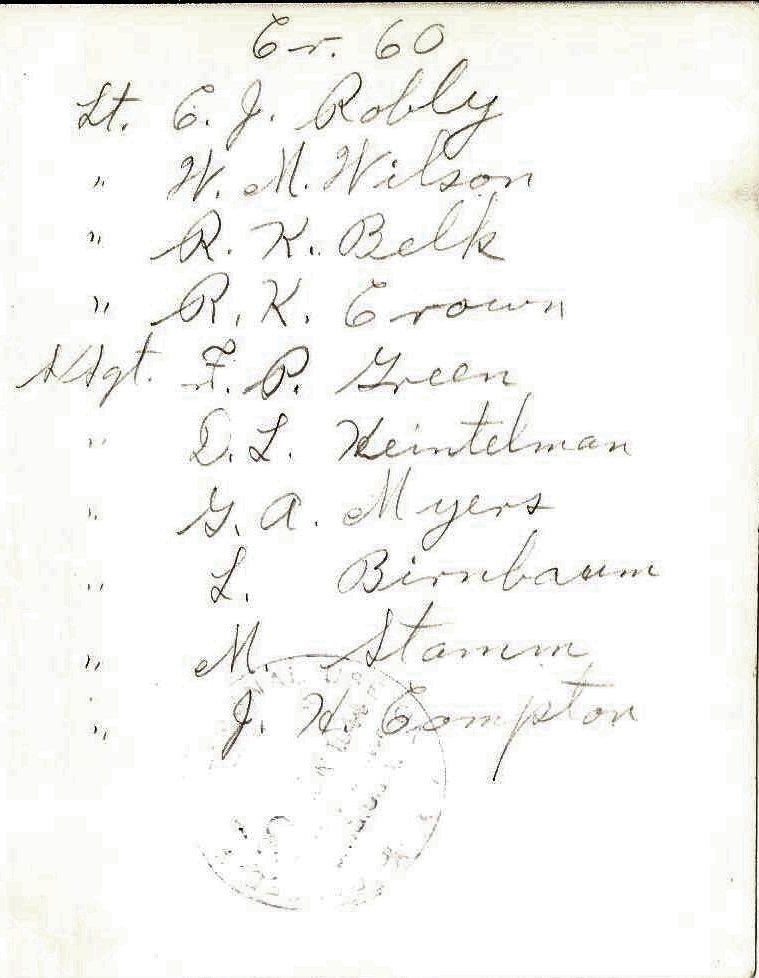 Cr. 60
Lt. C. J. Robly
" W. M. Wilson
" R. K. Belk
" R. K. Crown
S/Sgt. F. P. Green
" D. L. Heintelman
" G. A. Myers
" L. Birnbaum
" M. Stamm
" J. H. Compton